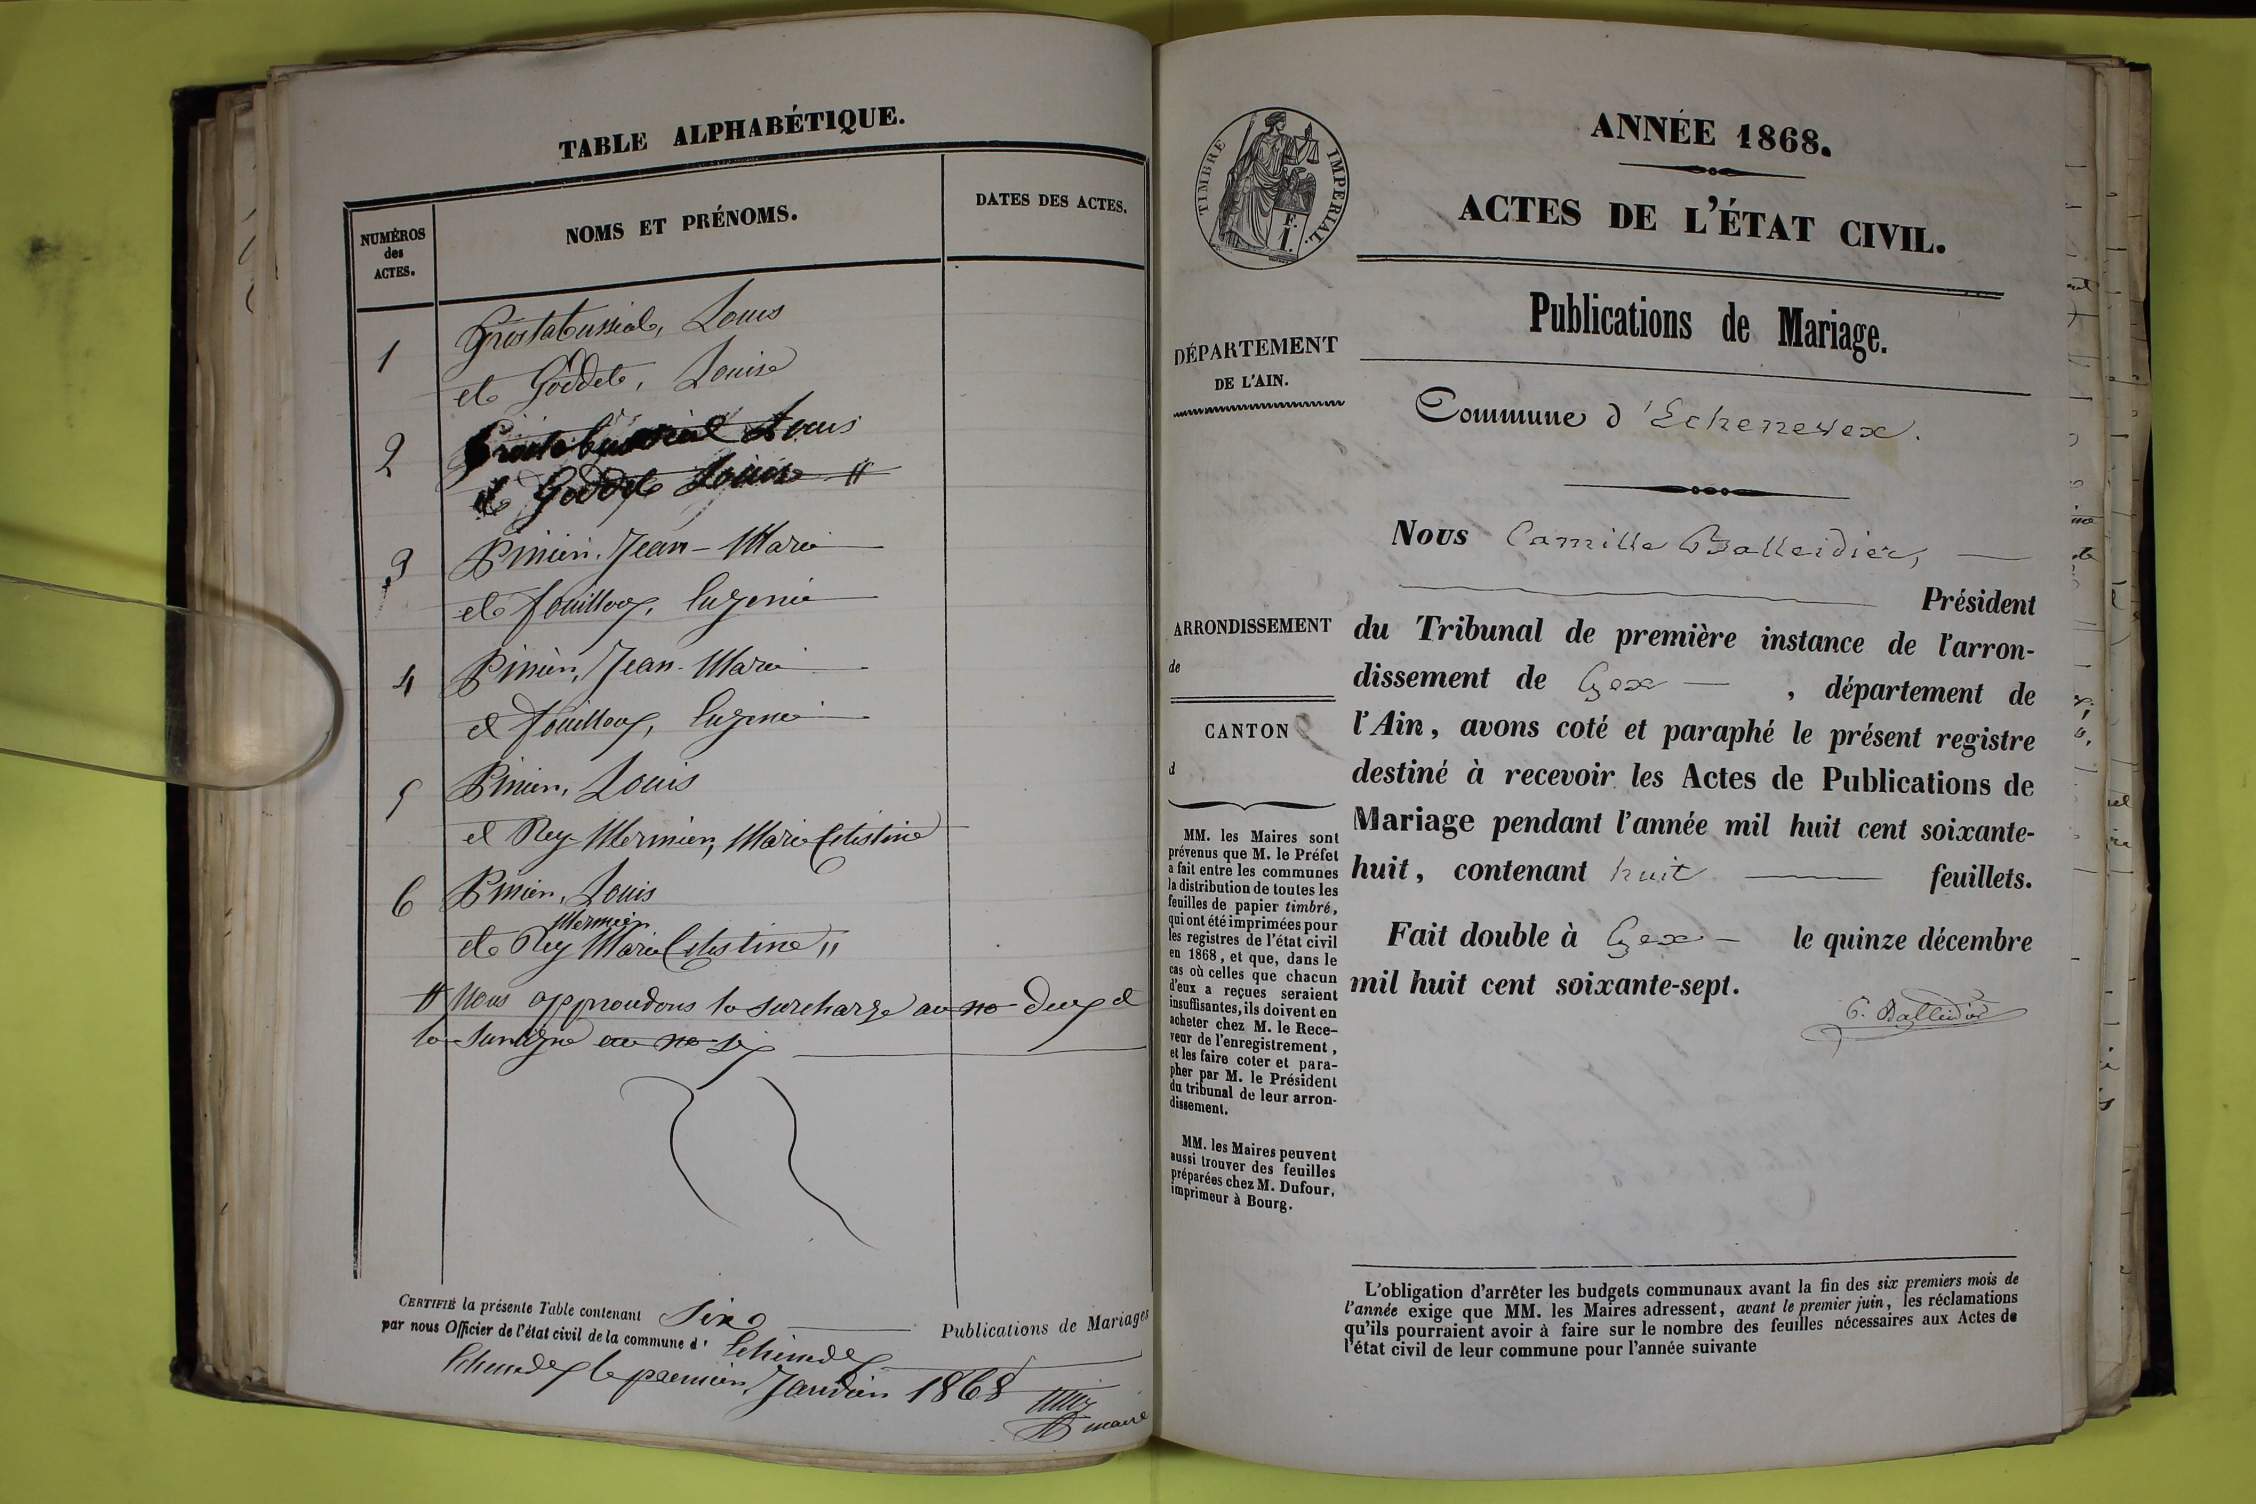 TABLE ALPHABÉTIQUE.
NUMÉROS
des
ACTES.
NOMS ET PRÉNOMS.
DATES DES ACTES.
1
Grostabussiat, Louis
et Goddet, Louise
2
Grostabussiat Louis
et Goddet Louise #
3
Pinier, Jean-Marie
et fouilloux, Eugénie
4
Pinier, Jean-Marie
et fouilloux, Eugénie
5
Pinier, Louis
et Rey Mermier, Marie Célestine
6
Pinier, Louis
Mermier
et Rey Marie Célestine "
# Nous approuvons la surcharge au no deux et
la surligne au no six
CERTIFIÉ la présente Table contenant Six Publications de Mariages
par nous Officier de l'état civil de la commune d' Echenevex
Echenevex le premier Janvier 1868
maire
TIMBRE IMPERIAL.
F.
1.
ANNÉE 1868.
ACTES DE L'ÉTAT CIVIL.
Publications de Mariage.
DÉPARTEMENT
DE L'AIN.
Commune d'Echenevex.
Nous Camille Balleidier,
Président
ARRONDISSEMENT
de
CANTON
d
du Tribunal de première instance de l'arron-
dissement de Gex , département de
l'Ain, avons coté et paraphé le présent registre
destiné à recevoir les Actes de Publications de
Mariage pendant l'année mil huit cent soixante-
huit, contenant huit feuillets.
Fait double à Gex le quinze décembre
mil huit cent soixante-sept.
C. Balleidier
MM. les Maires sont
prévenus que M. le Préfet
a fait entre les communes
la distribution de toutes les
feuilles de papier timbré,
qui ont été imprimées pour
les registres de l'état civil
en 1868, et que, dans le
cas où celles que chacun
d'eux a reçues seraient
insuffisantes, ils doivent en
acheter chez M. le Rece-
veur de l'enregistrement,
et les faire coter et para-
pher par M. le Président
du tribunal de leur arron-
dissement.
MM. les Maires peuvent
aussi trouver des feuilles
préparées chez M. Dufour,
imprimeur à Bourg.
L'obligation d'arrêter les budgets communaux avant la fin des six premiers mois de
l'année exige que MM. les Maires adressent, avant le premier juin, les réclamations
qu'ils pourraient avoir à faire sur le nombre des feuilles nécessaires aux Actes de
l'état civil de leur commune pour l'année suivante